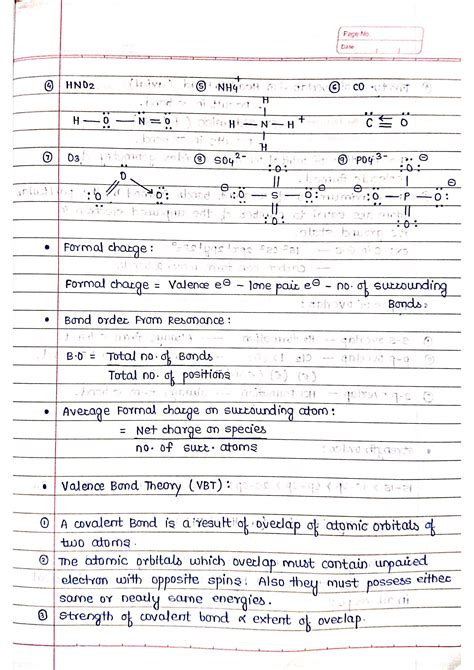 Page No.
Date
④ HNO2 ⑤ NH4+ ⑥ CO
H
H – O – N = O H – N – H + C ≡ O
H
⑦ O3 ⑧ SO4 2- ⑨ PO4 3-
O :O: :O: ⊖
O O: ⊖ :O – S – O: ⊖ ⊖ :O – P – O: ⊖
:O: :O:
• Formal charge:
Formal charge = Valence e⊖ - lone pair e⊖ - no. of surrounding
Bonds.
• Bond order From Resonance:
B.O = Total no. of Bonds
Total no. of positions
• Average Formal charge on surrounding atom:
= Net charge on species
no. of surr. atoms
• Valence Bond Theory (VBT):
① A covalent Bond is a result of overlap of atomic orbitals of
two atoms.
② The atomic orbitals which overlap must contain unpaired
electron with opposite spins. Also they must possess either
same or nearly same energies.
③ Strength of covalent bond ∝ extent of overlap.